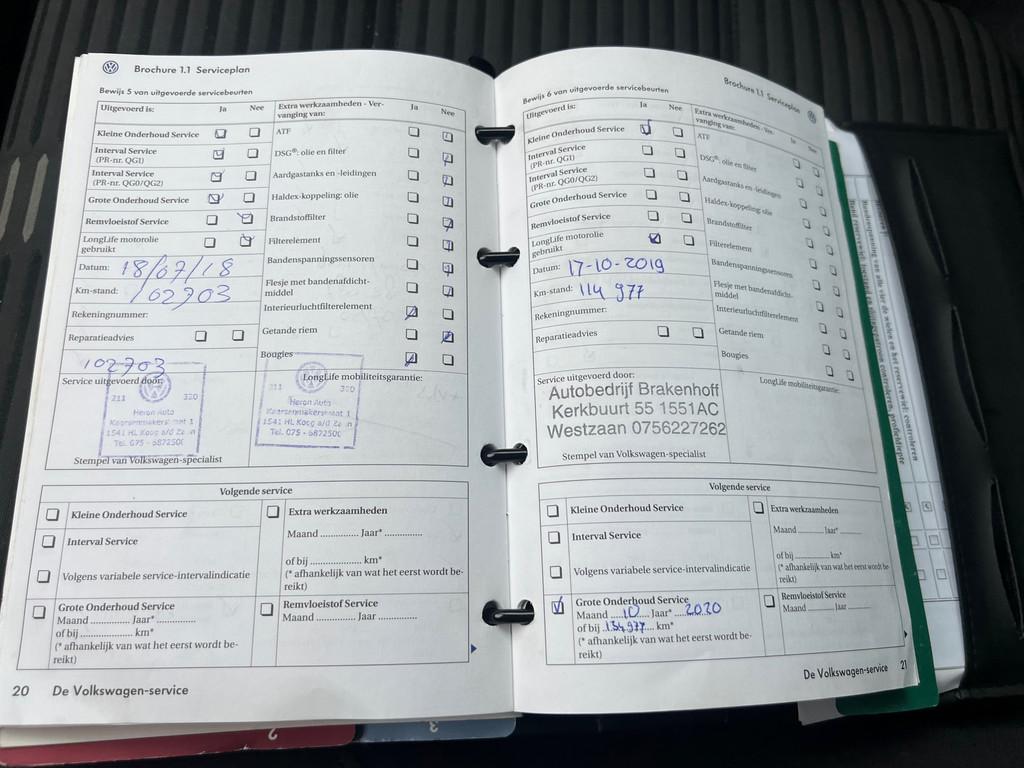 Brochure 1.1 Serviceplan
Bewijs 5 van uitgevoerde servicebeurten
Uitgevoerd is: Ja Nee
Kleine Onderhoud Service
Interval Service
(PR-nr. QG1)
Interval Service
(PR-nr. QG0/QG2)
Grote Onderhoud Service
Remvloeistof Service
LongLife motorolie
gebruikt
Datum: 18/07/18
Km-stand: 102703
Rekeningnummer:
Reparatieadvies
102703
Service uitgevoerd door:
Extra werkzaamheden - Ver-
vanging van: Ja Nee
ATF
DSG®: olie en filter
Aardgastanks en -leidingen
Haldex-koppeling: olie
Brandstoffilter
Filterelement
Bandenspanningssensoren
Flesje met bandenafdicht-
middel
Interieurluchtfilterelement
Getande riem
Bougies
LongLife mobiliteitsgarantie:
211 320
Heron Auto
1541 HL Koog a/d Zaan
Tel. 075 - 6872500
211 320
Heron Auto
1541 HL Koog a/d Zaan
Tel. 075 - 6872500
Stempel van Volkswagen-specialist
Volgende service
Kleine Onderhoud Service
Interval Service
Volgens variabele service-intervalindicatie
Grote Onderhoud Service
Maand .............. Jaar* ..............
of bij ................. km*
(* afhankelijk van wat het eerst wordt be-
reikt)
Extra werkzaamheden
Maand .............. Jaar* ..............
of bij ................. km*
(* afhankelijk van wat het eerst wordt be-
reikt)
Remvloeistof Service
Maand .............. Jaar ..............
20 De Volkswagen-service
Brochure 1.1 Serviceplan
Bewijs 6 van uitgevoerde servicebeurten
Uitgevoerd is: Ja Nee
Kleine Onderhoud Service
Interval Service
(PR-nr. QG1)
Interval Service
(PR-nr. QG0/QG2)
Grote Onderhoud Service
Remvloeistof Service
LongLife motorolie
gebruikt
Datum: 17-10-2019
Km-stand: 114 977
Rekeningnummer:
Reparatieadvies
Extra werkzaamheden - Ver-
vanging van: Ja Nee
ATF
DSG®: olie en filter
Aardgastanks en -leidingen
Haldex-koppeling: olie
Brandstoffilter
Filterelement
Bandenspanningssensoren
Flesje met bandenafdicht-
middel
Interieurluchtfilterelement
Getande riem
Bougies
Service uitgevoerd door:
LongLife mobiliteitsgarantie:
Autobedrijf Brakenhoff
Kerkbuurt 55 1551AC
Westzaan 0756227262
Stempel van Volkswagen-specialist
Volgende service
Kleine Onderhoud Service
Interval Service
Volgens variabele service-intervalindicatie
Grote Onderhoud Service
Maand 10 Jaar* 2020
of bij 134977 km*
(* afhankelijk van wat het eerst wordt be-
reikt)
Extra werkzaamheden
Maand .......... Jaar* ..........
of bij .............. km*
(* afhankelijk van wat het eerst wordt be-
reikt)
Remvloeistof Service
Maand .......... Jaar ..........
De Volkswagen-service 21
2
3